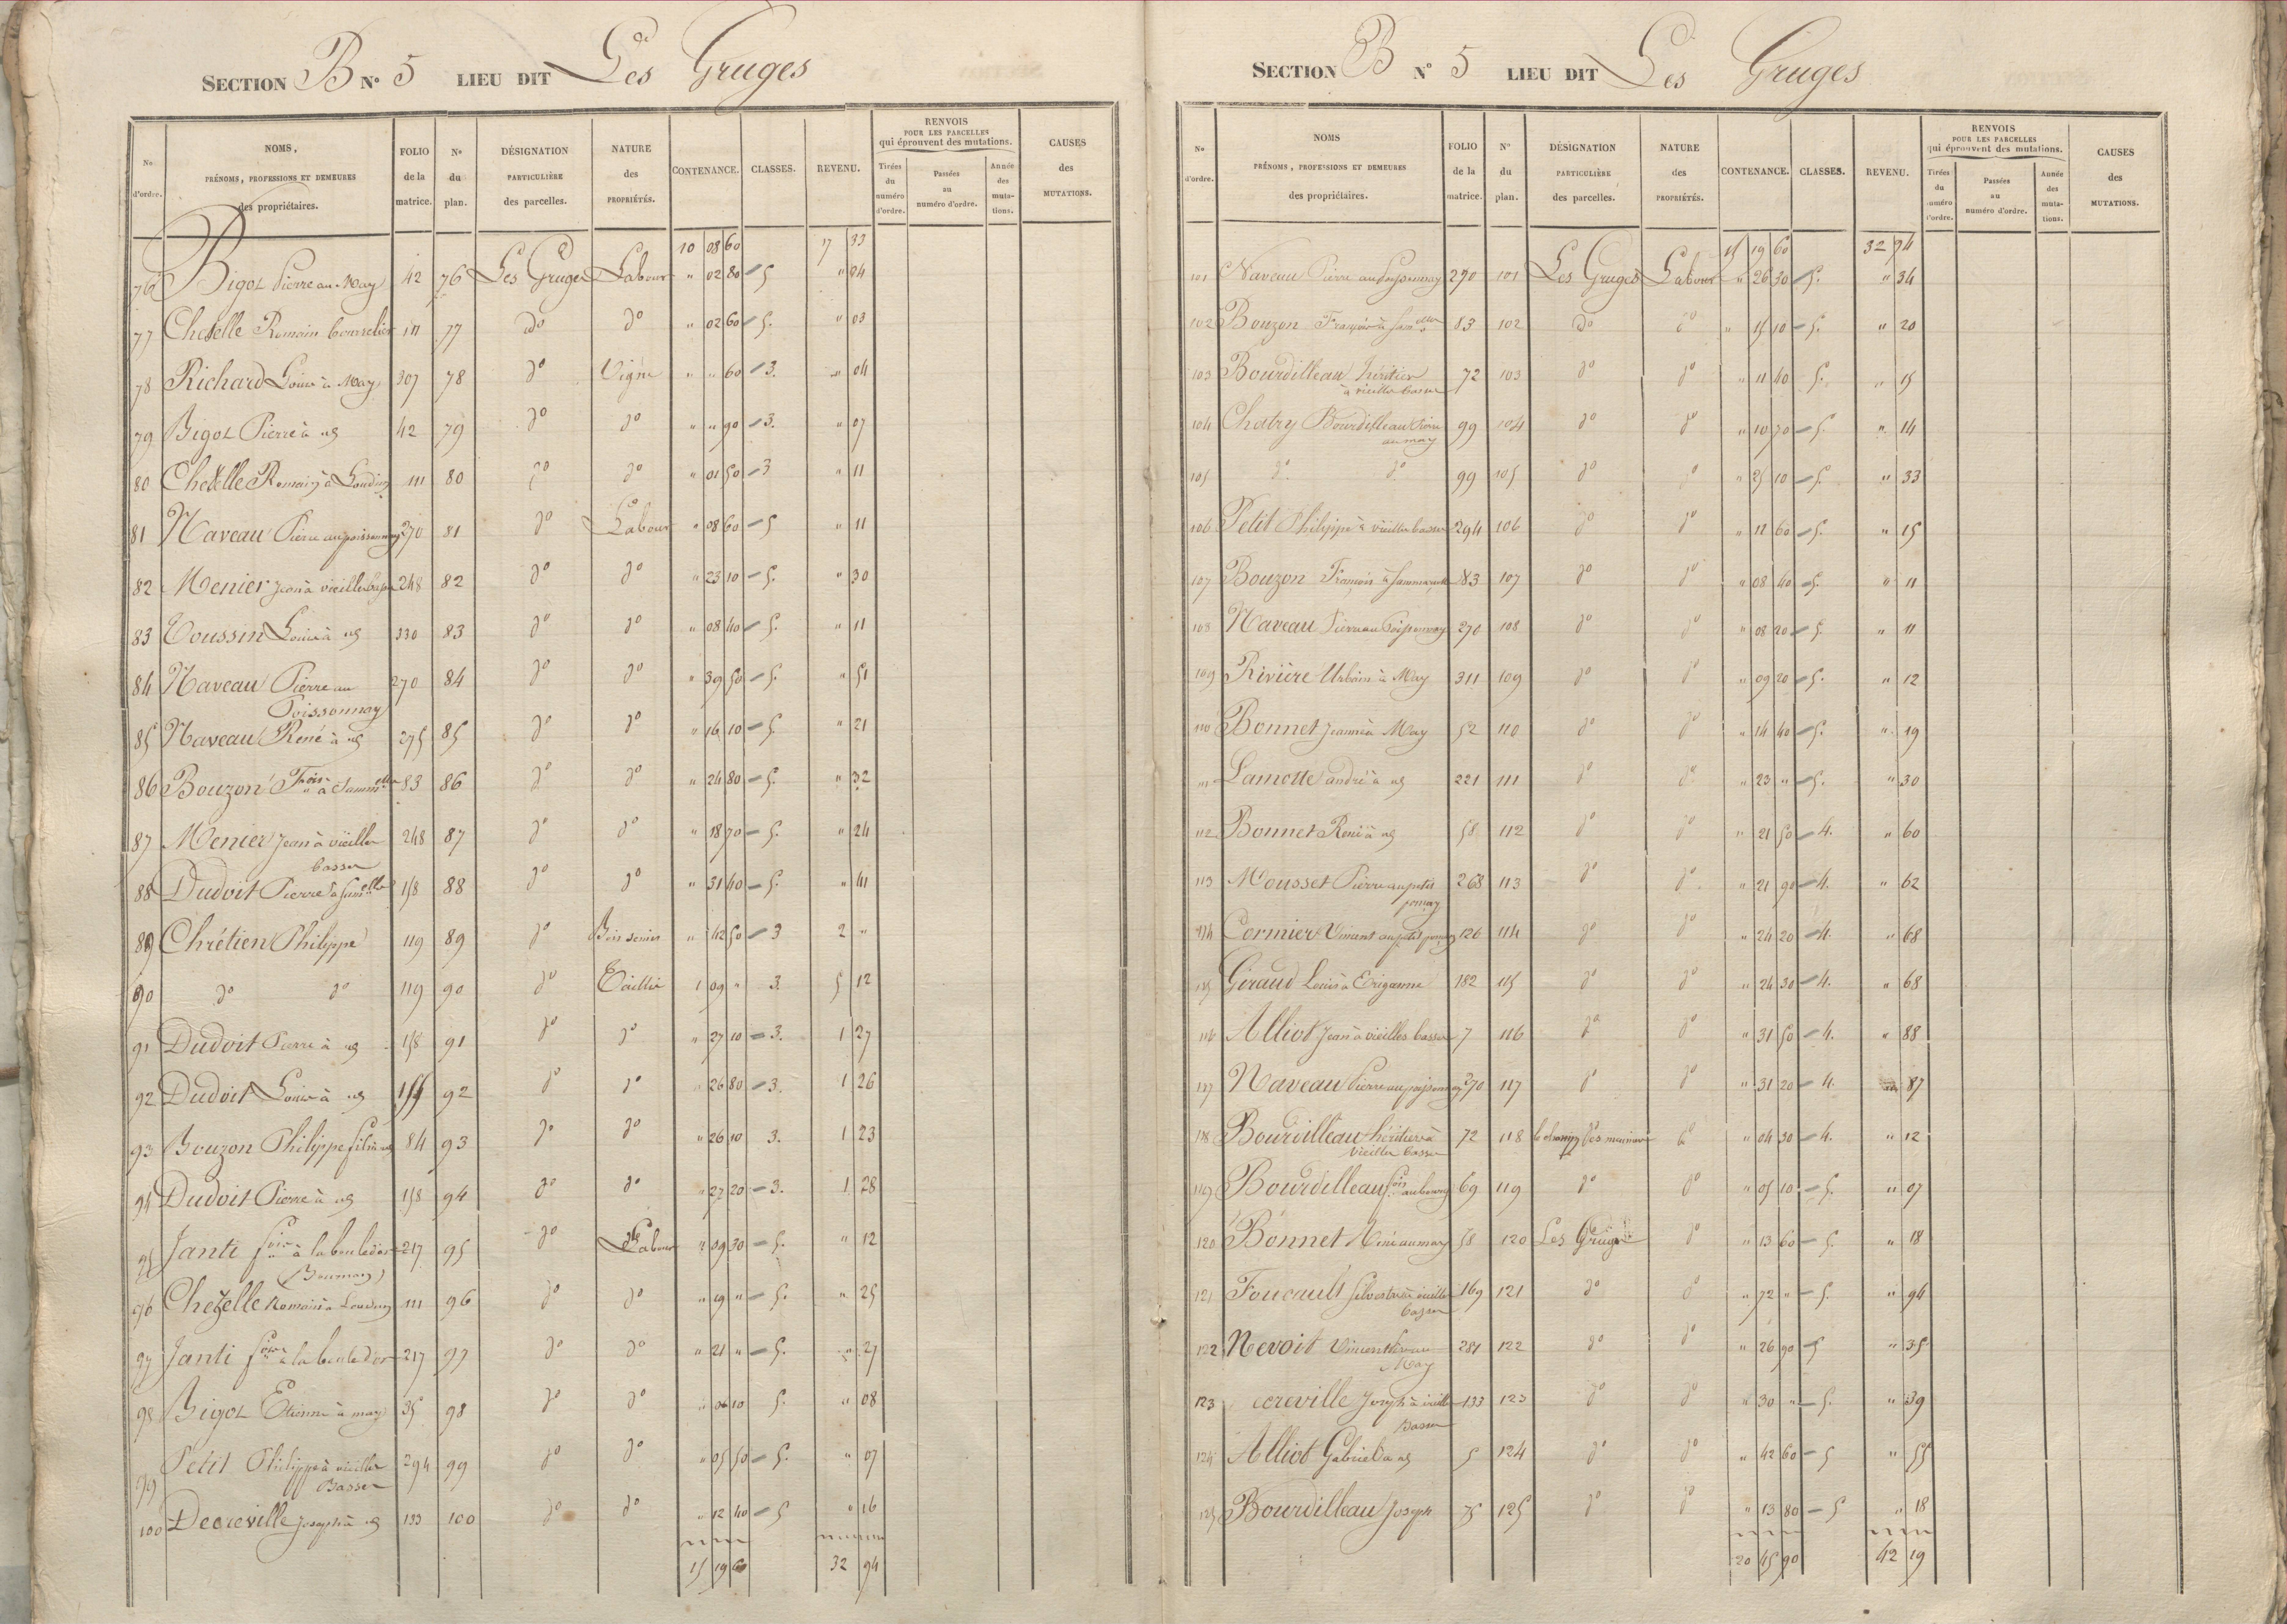 SECTION B N° 5 LIEU DIT Les Gruges
N° d'ordre. NOMS, PRÉNOMS, PROFESSIONS ET DEMEURES des propriétaires. FOLIO de la matrice. N° du plan. DÉSIGNATION PARTICULIÈRE des parcelles. NATURE des PROPRIÉTÉS. CONTENANCE. CLASSES. REVENU. RENVOIS POUR LES PARCELLES qui éprouvent des mutations. Tirées du numéro d'ordre. Passées au numéro d'ordre. Année des mutations. CAUSES des MUTATIONS.
10 08 60 17 33
76 Bigot Pierre au May 42 76 Les Gruges Labour " 02 80 5 " 04
77 Chetelle Romain bourrelier 111 77 do do " 02 60 5. " 03
78 Richard Louis à May 307 78 do Vigne " " 60 3. " 04
79 Bigot Pierre à us 42 79 do do " " 90 3. " 07
80 Chetelle Romain à Loudun 111 80 do do " 01 50 3 " 11
81 Naveau Pierre au poissonnay 270 81 do Labour " 08 60 5 " 11
82 Menier Jean à vieilles basses 248 82 do do " 23 10 5. " 30
83 Toussin Louis à us 330 83 do do " 08 40 5. " 11
84 Naveau Pierre au Poissonnay 270 84 do do " 39 50 5. " 51
85 Naveau René à us 275 85 do do " 16 10 5. " 21
86 Bouzon Fois à Sammlle 83 86 do do " 24 80 5. " 32
87 Menier Jean à vieilles basses 248 87 do do " 18 70 5. " 24
88 Dudoit Pierre à Sammlle 158 88 do do " 31 40 5. " 41
89 Chrétien Philippe 119 89 do Bois semis " 42 50 3 2 "
90 do do 119 90 do Taillis 1 09 " 3. 5 12
91 Dudoit Pierre à us 158 91 do do " 27 10 3. 1 27
92 Dudoit Louis à us 155 92 do do " 26 80 3. 1 26
93 Bouzon Philippe fils à us 84 93 do do " 26 10 3. 1 23
94 Dudoit Pierre à us 158 94 do do " 27 20 3. 1 28
95 Janti fois à la boule d'or 217 95 do Labour " 09 30 5. " 12
96 Chezelle Romain à Loudun 111 96 do do " 19 " 5. " 25
97 Janti fois à la boule d'or 217 97 do do " 21 " 5. " 27
98 Bigot Etienne à may 35 98 do do " 06 10 5. " 08
99 Petit Philippe à vieilles Basses 294 99 do do " 05 50 5. " 07
100 Decreville Joseph à us 133 100 do do " 12 40 5 " 16
15 19 60 32 94
SECTION B N° 5 LIEU DIT Les Gruges
N° d'ordre. NOMS PRÉNOMS, PROFESSIONS ET DEMEURES des propriétaires. FOLIO de la matrice. N° du plan. DÉSIGNATION PARTICULIÈRE des parcelles. NATURE des PROPRIÉTÉS. CONTENANCE. CLASSES. REVENU. RENVOIS POUR LES PARCELLES qui éprouvent des mutations. Tirées du numéro d'ordre. Passées au numéro d'ordre. Année des mutations. CAUSES des MUTATIONS.
15 19 60 32 94
101 Naveau Pierre au Poissonnay 270 101 Les Gruges Labour " 26 30 5. " 34
102 Bouzon François à Samlle 83 102 do do " 15 10 5. " 20
103 Bourdilleau héritiers à vieilles basses 72 103 do do " 11 40 5. " 15
104 Chatry Bourdilleau Pierre au may 99 104 do do " 10 70 5. " 14
105 do do 99 105 do do " 25 10 5. " 33
106 Petit Philippe à vieilles basses 294 106 do do " 11 60 5. " 15
107 Bouzon François à Sammarcolle 83 107 do do " 08 40 5. " 11
108 Naveau Pierre au Poissonnay 270 108 do do " 08 20 5. " 11
109 Rivière Urbain à May 311 109 do do " 09 20 5. " 12
110 Bonnet Jeanne à May 52 110 do do " 14 40 5. " 19
111 Lamotte andré à us 221 111 do do " 23 " 5. " 30
112 Bonnet René à us 58 112 do do " 21 50 4. " 60
113 Mousset Pierre au petit pouzay 268 113 do do " 21 90 4. " 62
114 Cormier Vincent au petit pouzay 126 114 do do " 24 20 4. " 68
115 Giraud Louis à Crizanne 182 115 do do " 24 30 4. " 68
116 Alliot Jean à vieilles basses 7 116 do do " 31 50 4. " 88
117 Naveau Pierre au poissonnay 270 117 do do " 31 20 4. " 87
118 Bourdilleau héritiers à vieilles basses 72 118 le champ des meuniers do " 04 30 4. " 12
119 Bourdilleau fois au bourg 69 119 do do " 05 10 5. " 07
120 Bonnet René au may 58 120 Les Gruges do " 13 60 5. " 18
121 Foucault Silvestre à vieilles basses 169 121 do do " 72 " 5. " 94
122 Nevoit Vincent au May 281 122 do do " 26 90 5 " 35
123 ecreville Joseph à vieilles Basses 133 123 do do " 30 " 5. " 39
124 Alliot Gabriel à us 5 124 do do " 42 60 5 " 55
125 Bourdilleau Joseph 75 125 do do " 13 80 5 " 18
20 45 90 42 19